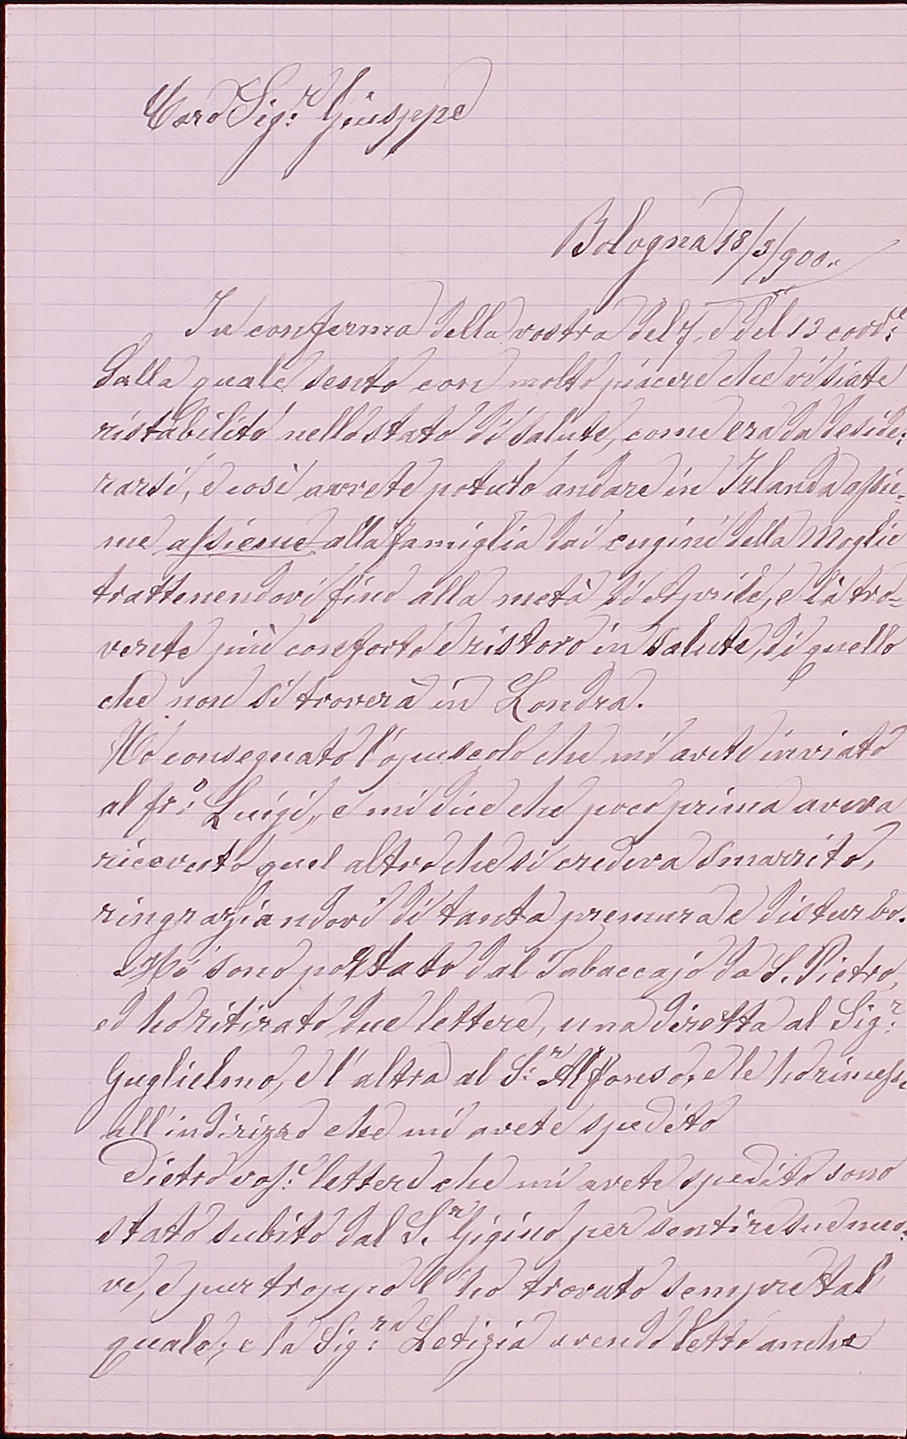 Caro Sig.r Giuseppe
Bologna 18/3/900.
In conferma della vostra del 7, e del 13 corr.e
dalla quale sento con molto piacere che vi siate
ristabilito nello stato di salute, come era da deside:
rarsi, e così avrete potuto andare in Irlanda assie-
me assieme alla famiglia dai cugini della Moglie
trattenendovi fino alla metà di Aprile, e là tro-
verete più conforto e ristoro in salute, di quello
che non si troverà in Londra.
Hò consegnato l'opuscolo che mi avete inviato
al fr:o Luigi, e mi dice che poco prima aveva
ricevuto quel altro che si credeva smarrito,
ringraziandovi di tanta premura e disturbo.
Mi sono portato dal Tabaccajo da S. Pietro,
ed ho ritirato due lettere, una diretta al Sig:r
Guglielmo, e l'altra al S:r Alfonso, e le ho rimesse
all'indirizzo che mi avete spedito
Dietro vos:e lettere che mi avete spedito sono
stato subito dal S.r Gigino per sentire sue nuo:
ve, e pur troppo l'ho trovato sempre tal
quale; e la Sig:ra Letizia avendo letto anche